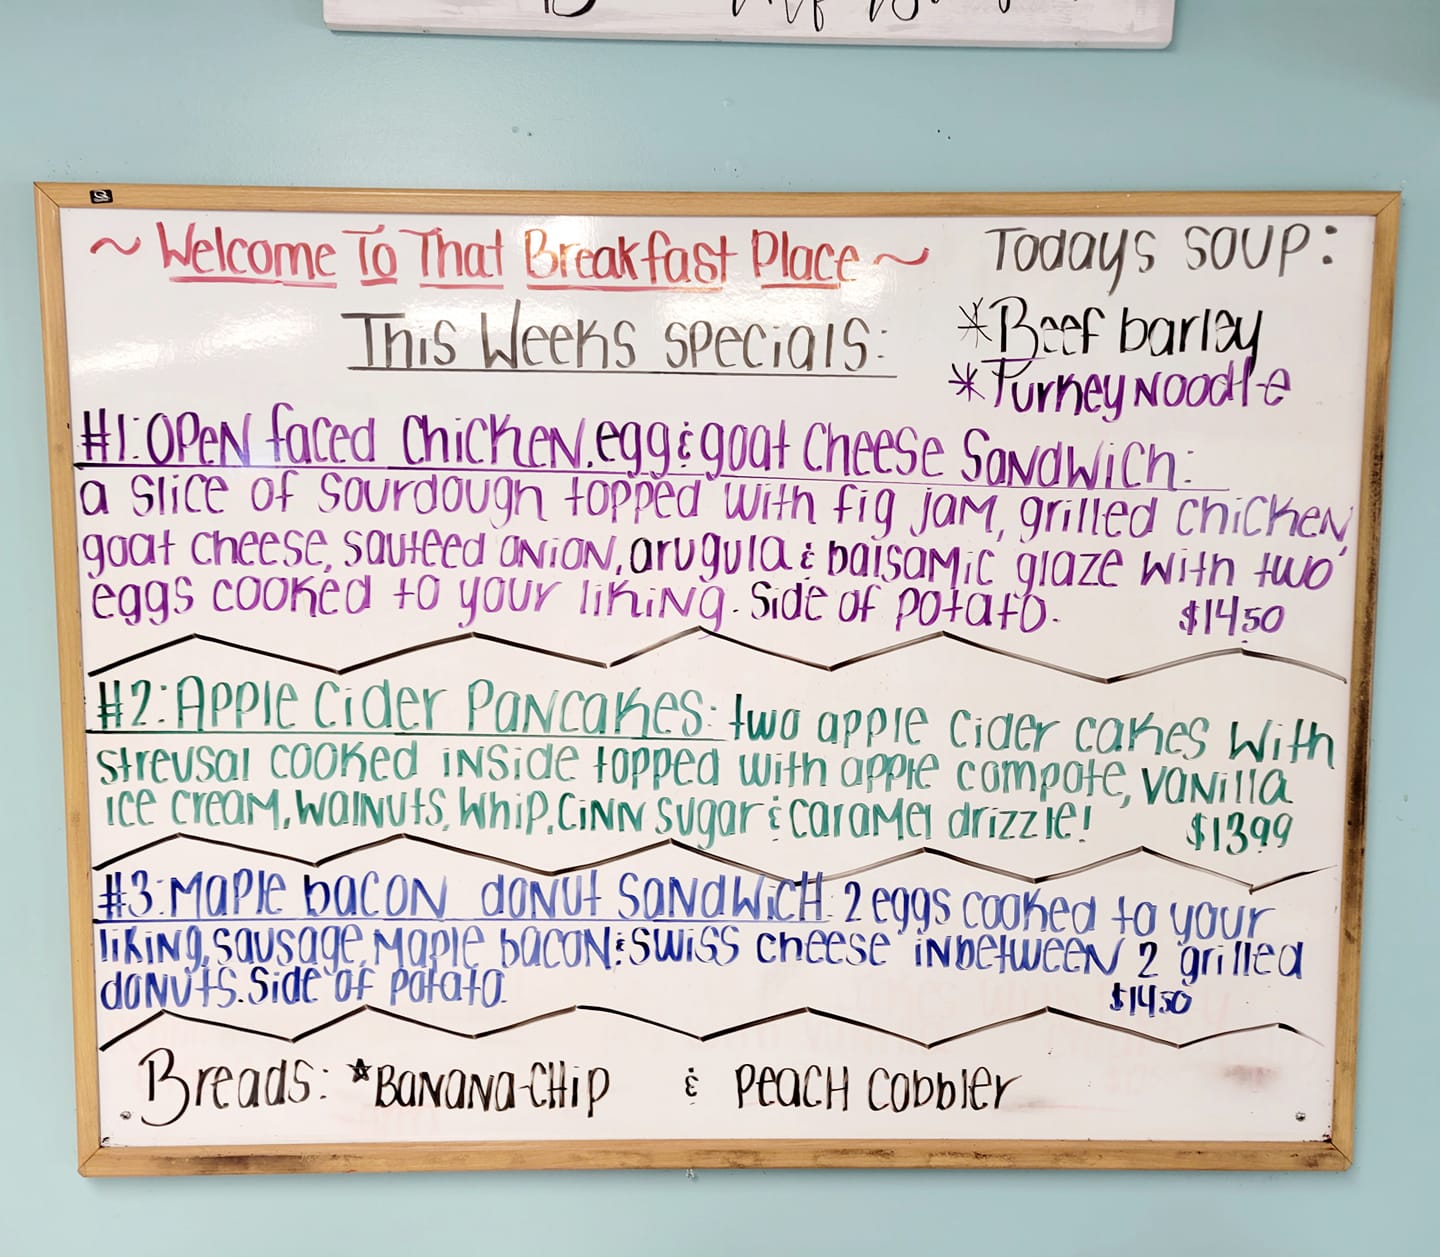 ~ Welcome To That Breakfast Place ~
Todays SOUP:
*Beef barley
*Turkey Noodle
This Weeks specials:
#1: OPeN faced chicken, egg & goat cheese Sandwich:
a slice of sourdough topped with fig jam, grilled chicken,
goat cheese, sauteed onion, arugula & balsamic glaze with two
eggs cooked to your liking. Side of potato.
$14.50
#2: APPle Cider Pancakes: two apple cider cakes with
streusal cooked inside topped with apple compote, vanilla
ice cream, walnuts, whip, cinn sugar & caramel drizzle!
$1399
#3: Maple bacon donut sandwich: 2 eggs cooked to your
liking, sausage, maple bacon & swiss cheese inbetween 2 grilled
donuts. Side of potato.
$1450
Breads: *BANANA-CHip & PEACH cobbler